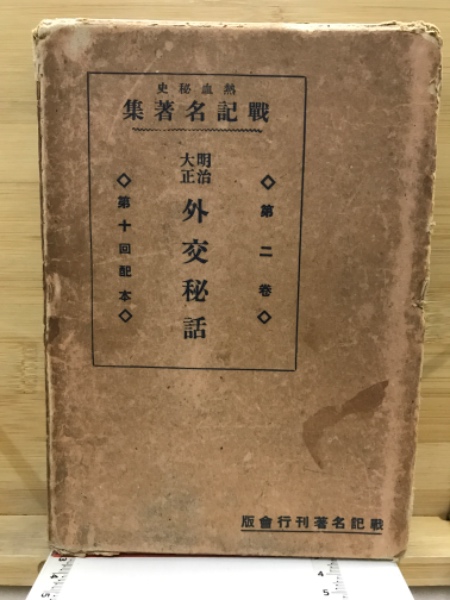 熱血秘史
戰記名著集
◇第二卷◇
明治
大正
外交秘話
◇第十回配本◇
戰記名著刊行會版
4
5